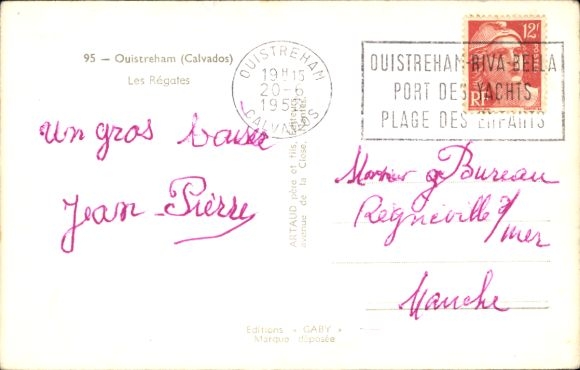 95 — Ouistreham (Calvados)
Les Régates
Un gros baiser
Jean-Pierre
OUISTREHAM
19 H 15
20-6
CALVADOS
12F
RF
OUISTREHAM-RIVA-BELLA
PORT DES YACHTS
PLAGE DES ENFANTS
ARTAUD père et fils, Editeurs
avenue de la Close, Nantes
Bureau
Regnéville s/
mer
Manche
Editions « GABY »
Marque déposée